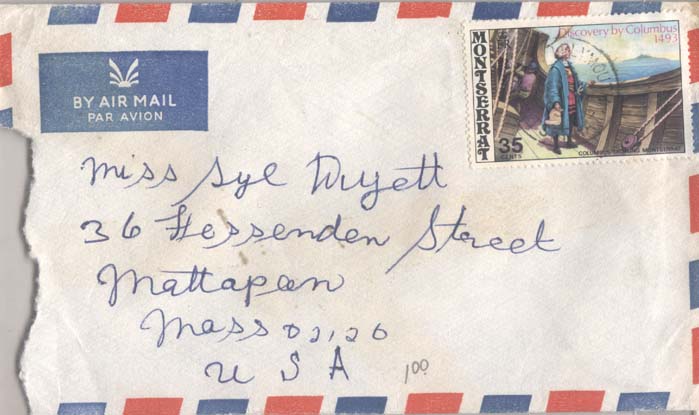 BY AIR MAIL
PAR AVION
Discovery by Columbus
1493
MONTSERRAT
35
CENTS
Miss Syl Duyett
36 Fessenden Street
Mattapan
Mass 02126
U S A
1.00